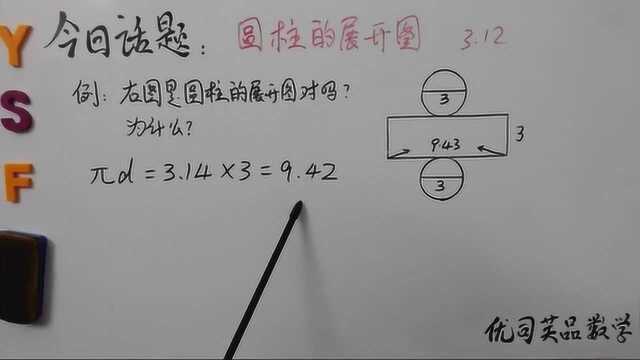 Y
S
F
今日话题：圆柱的展开图 3.12
例：右图是圆柱的展开图对吗？
为什么？
πd=3.14×3=9.42
3
943
3
3
优司芙品数学